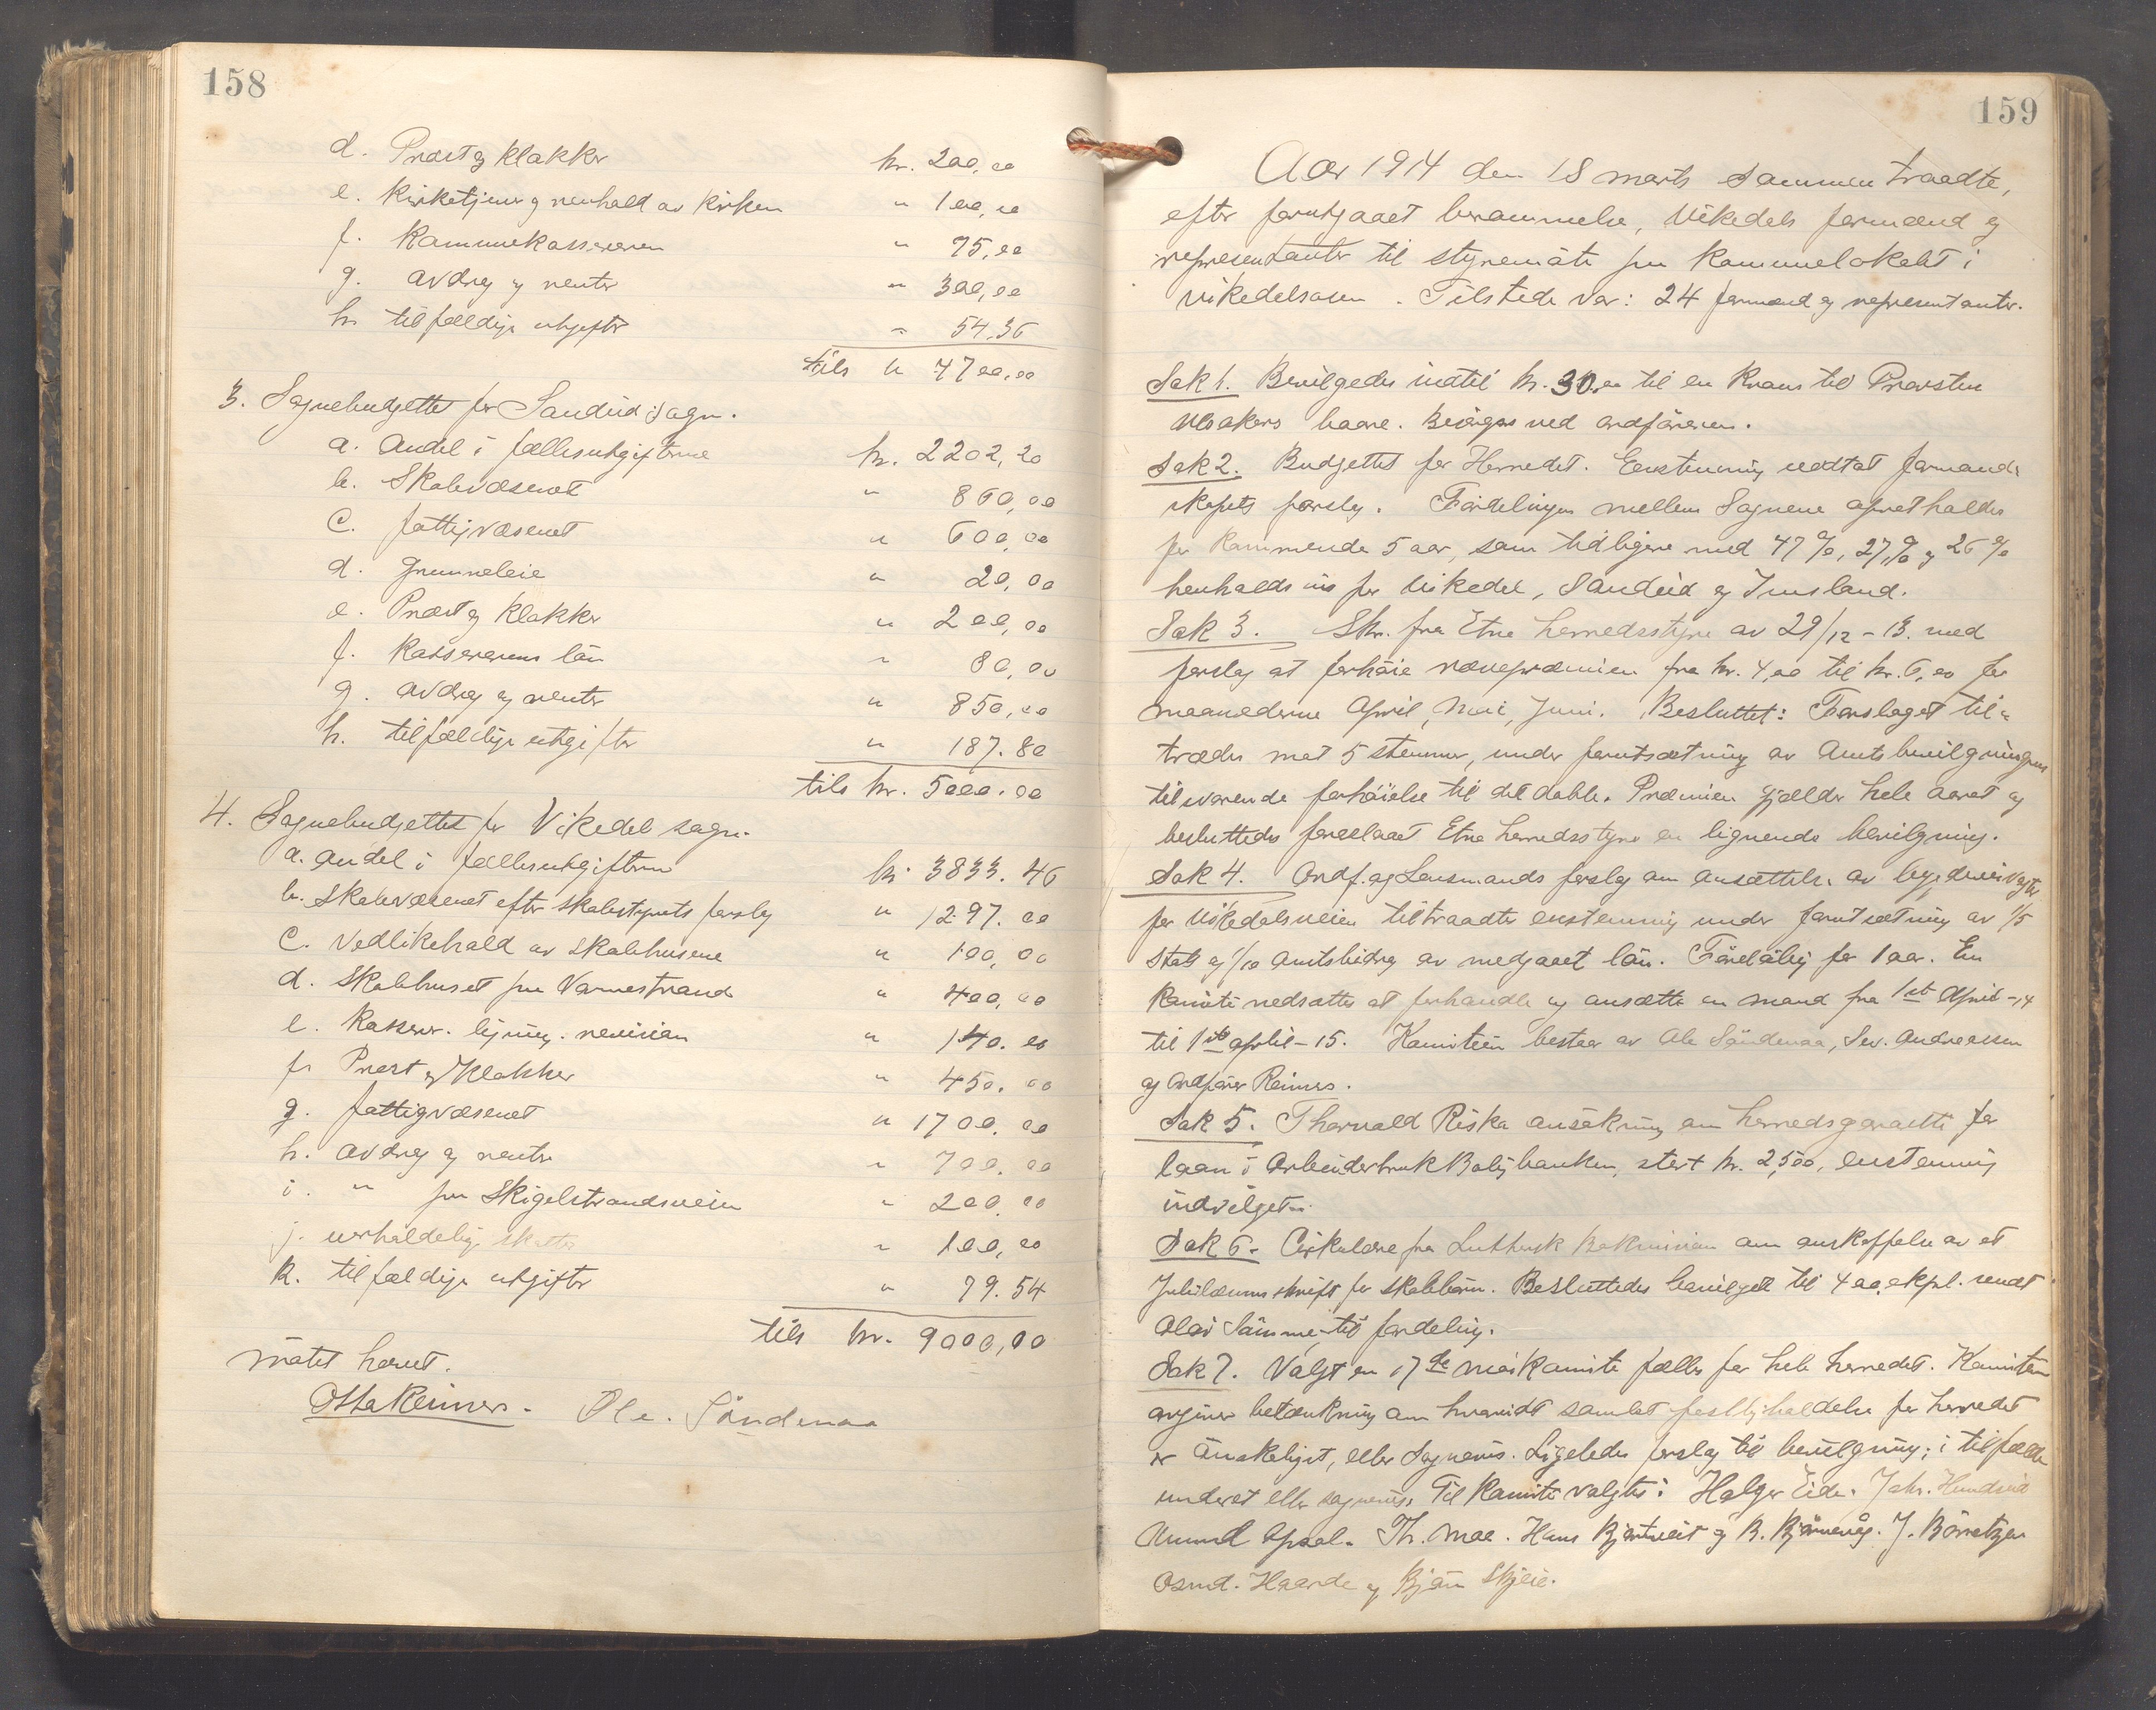 158
d. Præst og klokker kr. 200,00
e. Kirketjener og renhold av kirken " 100,00
f. Kommunekassereren " 75,00
g. avdrag og renter " 300,00
h. tilfældige utgifter " 54,36
tils " 4700,00
3. Sognebudgettet for Sandeid sogn.
a. Andel i fællesutgifterne kr. 2202,20
b. Skolevæsenet " 860,00
c. fattigvæsenet " 600,00
d. Grunneleie " 20,00
e. Præst og klokker " 200,00
f. Kassererens løn " 80,00
g. avdrag og renter " 850,00
h. tilfældige utgifter " 187.80
tils kr. 5000.00
4. Sognebudgettet for Vikedal sogn.
a. andel i fællesutgifterne kr. 3833.46
b. Skolevæsenet efter skolestyrets forslag " 1297.00
c. Vedlikehold av skolehusene " 100,00
d. Skolehuset paa Varnestrand " 400,00
e. Kasserer. ligning. revision " 140.00
f. Præst og Klokker " 450.00
g. fattigvæsenet " 1700.00
h. avdrag og renter " 700.00
i. " paa Skigelstrandsveien " 200.00
j. uerholdelige skatter " 100,00
k. tilfældige utgifter " 79.54
tils kr. 9000,00
møtet hævet.
Otto Reimers. Ole. Söndenaa
159
Aar 1914 den 18 marts sammentraadte,
efter forutgaaet berammelse, Vikedals formænd og
representanter til styremöte paa Kommunelokalet i
Vikedalsosen. Tilstede var: 24 formænd og representanter.
Sak 1. Bevilgedes indtil kr. 30.00 til en Krans til Provsten
baare. Besörges ved ordföreren.
Sak 2. Budgettet for Herredet. Enstemmig vedtat formand-
skapets forslag. Fordelingen mellem Sognene opretholdes
for kommende 5 aar, som tidligere med 47 %, 27 % og 26 %
henholdsvis for Vikedal, Sandeid og Imsland.
Sak 3. Skr. fra Etne herredsstyre av 29/12 - 13. med
forslag at forhöie rævepræmien fra kr. 4,00 til kr. 6,00 for
maanederne April, Mai, Juni. Besluttet: Forslaget til-
trædes mot 5 stemmer, under forutsætning av Amtsbevilgningens
tilsvarende forhöielse til det doble. Præmien gjælder hele aaret og
besluttedes foreslaaet Etne herredsstyre en lignende bevilgning.
Sak 4. Ordf. og Lensmands forslag om ansættelse av bygdeveivogter
for Vikedalsveien tiltraadtes enstemmig under forutsætning av 1/5
Stats og 1/10 Amtsbidrag av medgaaet lön. Forelöbig for 1 aar. En
Komite nedsættes at forhandle og ansætte en mand fra 1ste April -14
til 1ste april - 15. Komiteen bestaar av Ole Söndenaa, Sev. Andreassen
og Ordförer Reimers.
Sak 5. Thorvald Riska ansökning om herredsgaranti for
laan i Arbeiderbruk Boligbanken, stort kr. 2,500, enstemmig
indvilget.
Sak 6. Cirkulære fra Luthersk om anskaffelse av et
Jubilæumsskrift for skolebörn. Besluttedes bevilget til 400 expl. sendt
Olai til fordeling.
Sak 7. Valgt en 17de mai Komite fælles for hele herredet. Komiteen
avgiver betænkning om hvorvidt samlet festligholdelse for herredet
er önskeligst, eller Sognevis. Ligeledes forslag til bevilgning, i tilfælde
eller sognevis. Til Komite valgtes: Holger Eide. Joh.
Opsal. Th. Moe. Hans og B. J.
Osmd. Haarde og Björn Skjeie.